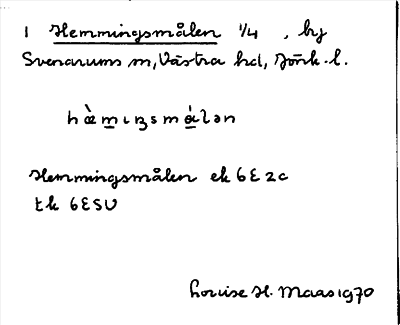 1 Hemmingsmålen 1/4 , by
Svenarums sn, Västra hd, Jönk. l.
hὰmɩŋsmálən
Hemmingsmålen ek 6E 2c
tk 6ESV
Louise H. Maas 1970